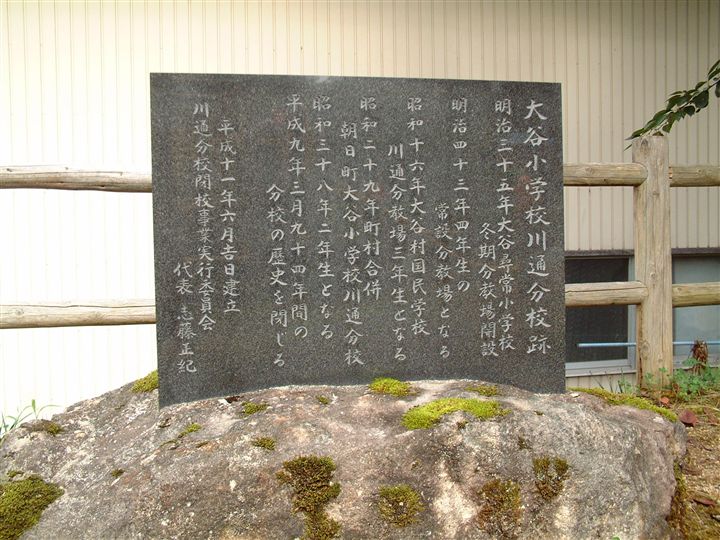 大谷小学校川通分校跡
明治三十五年大谷尋常小学校
冬期分教場開設
明治四十三年四年生の
常設分教場となる
昭和十六年大谷村国民学校
川通分教場三年生となる
昭和二十九年町村合併
朝日町大谷小学校川通分校
昭和三十八年二年生となる
平成九年三月九十四年間の
分校の歴史を閉じる
平成十一年六月吉日建立
川通分校閉校事業実行委員会
代表 志藤正紀